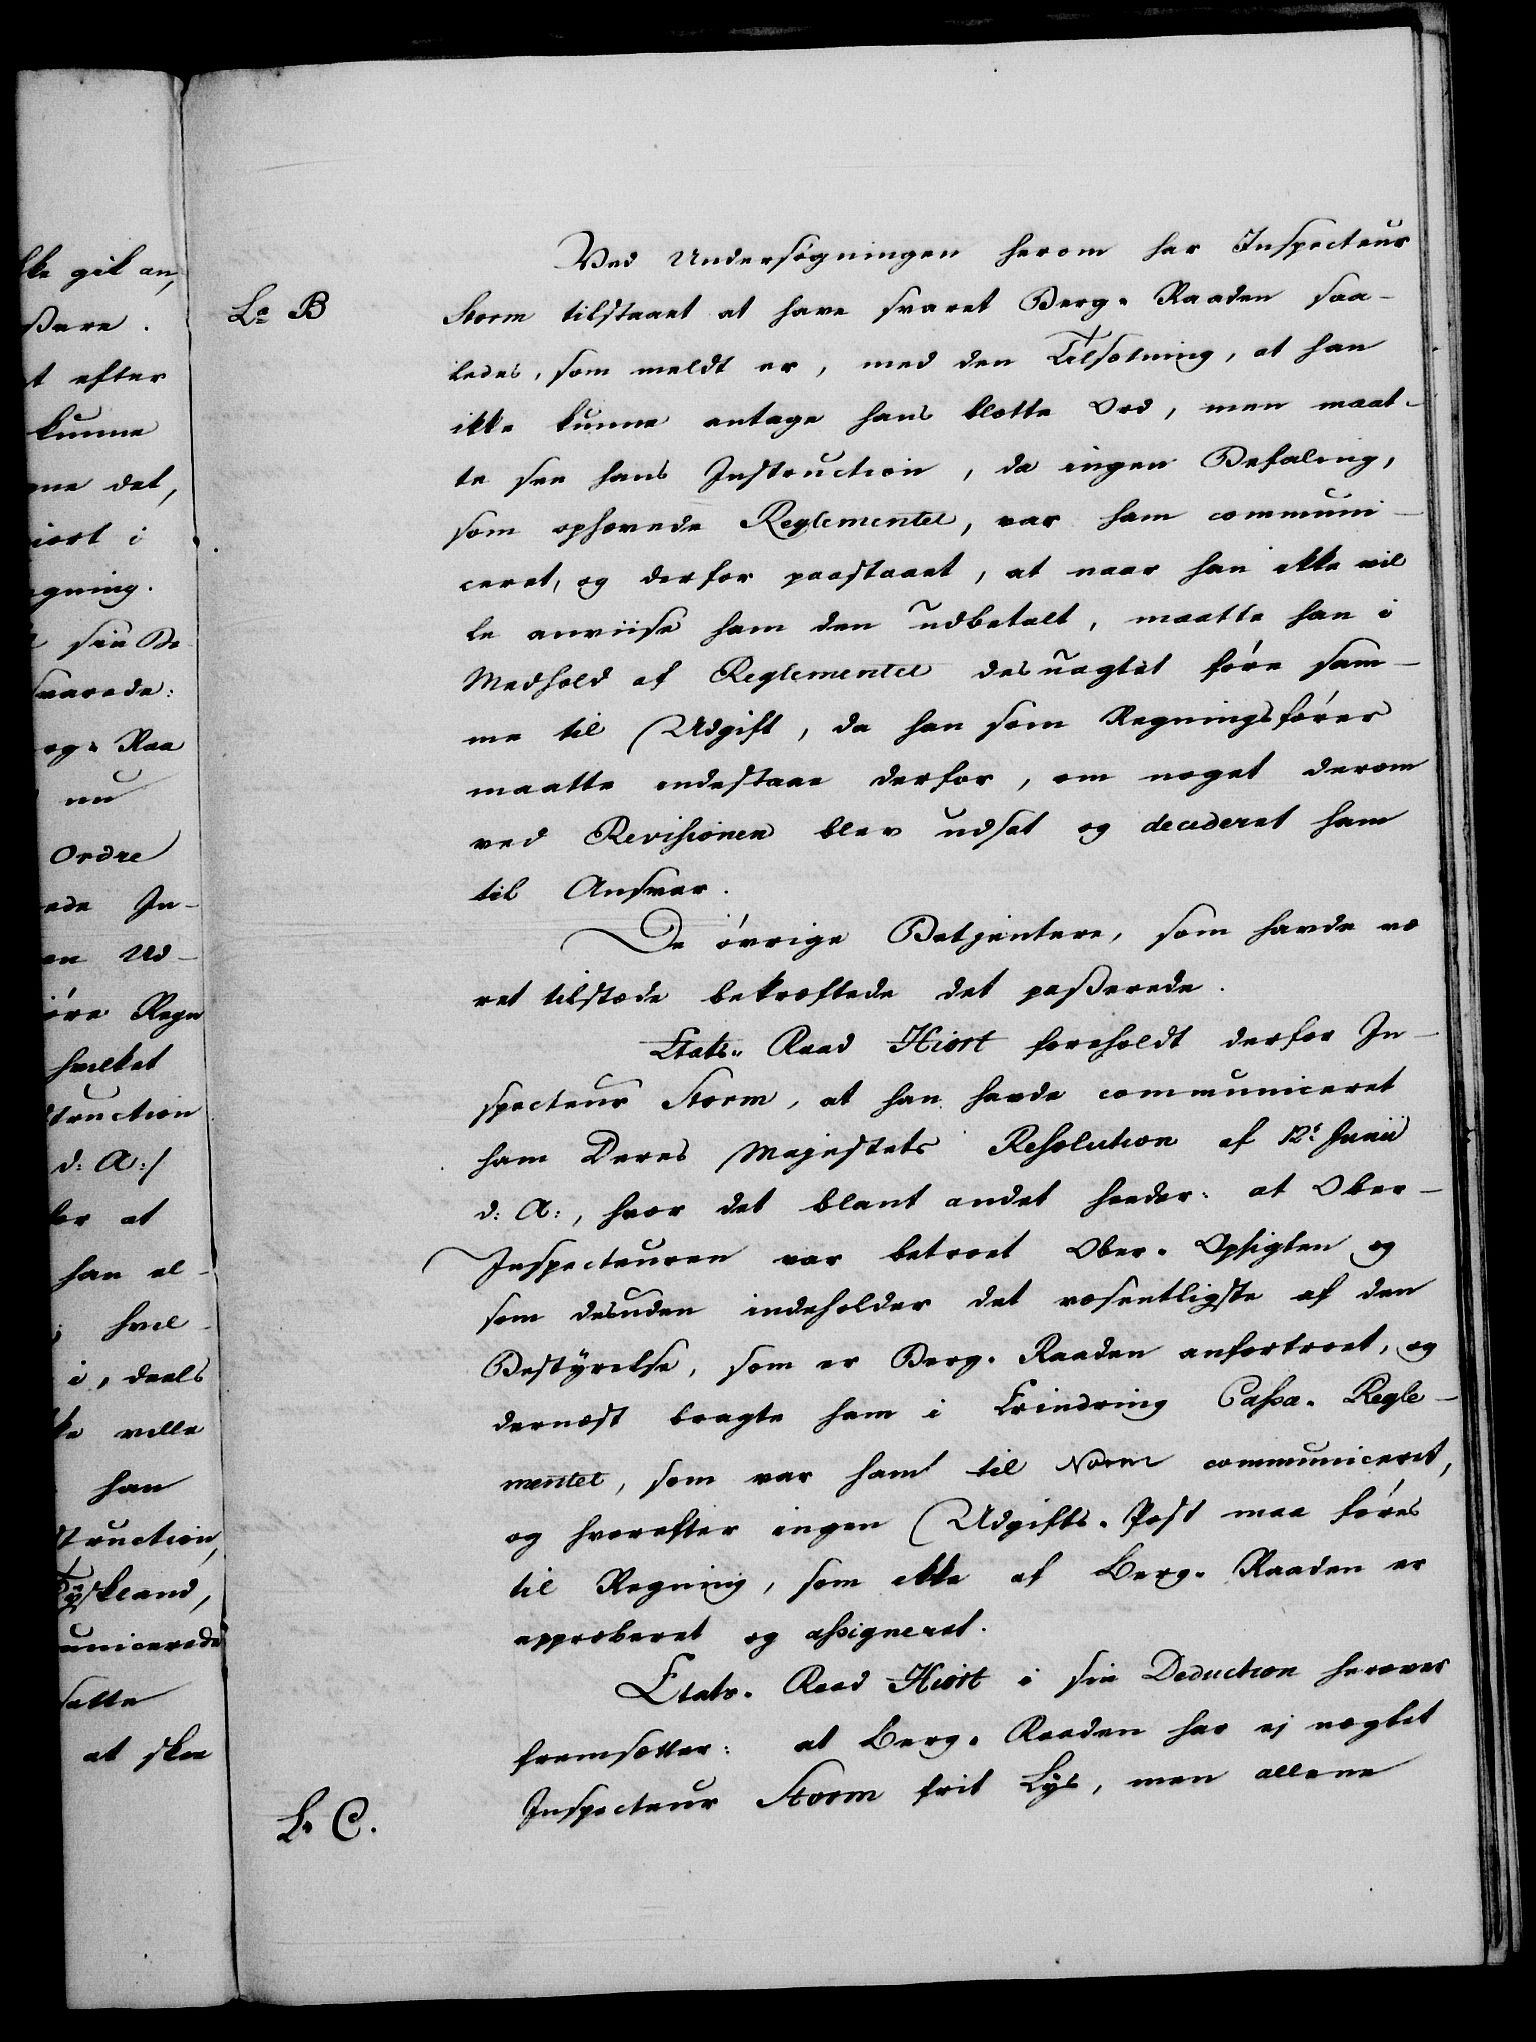 ikke gik an,
ßere.
t efter
kunne
gne det,
iort i
gning.
sin Be
svarede:
og. Raa
nu
Ordre
ede In-
en Ud-
øre Regn
hvilket
struction
d: A:/
for at
han el-
hvil-
i, deels
ke ville
han
struction,
Tyskland,
unicerede
satte
at skee
Ved Undersøgningen herom har Inspecteur
La B Storm tilstaaet at have svaret Berg-Raaden saa-
ledes, som meldt er, med den Tilsætning, at han
ikke kunne antage hans blotte Ord, men maat-
te see hans Instruction, da ingen Befaling,
som ophævede Reglementet, var ham communi-
ceret, og derfor paastaaet, at naar han ikke vil
le anviise ham den udbetalt, maatte han i
Medhold af Reglementet desuagtet føre sam-
me til Udgift, da han som Regningsfører
maatte indestaae derfor, om noget derom
ved Revisionen blev udsat og decideret ham
til Ansvar.
De øvrige Betjentere, som havde væ
ret tilstæde bekræftede det paßerede.
Etats-Raad Hiort foreholdt derfor In-
specteur Storm, at han havde communiceret
ham Deres Majestets Resolution af 12te Junii
d: A:, hvor det blant andet heeder: at Ober-
Inspecteuren var betroet Ober-Opsigten og
som desuden indeholder det væsentligste af den
Bestyrelse, som er Berg-Raaden anfortroet, og
dernæst bragte ham i Erindring Cassa-Regle-
mentet, som var ham til Norm communiceret,
og hvorefter ingen Udgifts-Post maa føres
til Regning, som ikke af Berg-Raaden er
approberet og assigneret.
Etats-Raad Hiort i sin Deduction herover
fremsætter: at Berg-Raaden har ej nægtet
L. C. Inspecteur Storm frit Lys, men allene